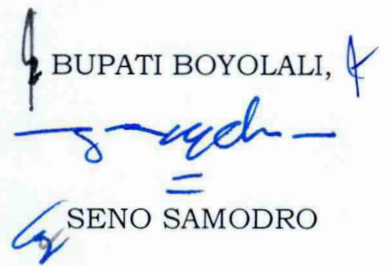 BUPATI BOYOLALI,
SENO SAMODRO